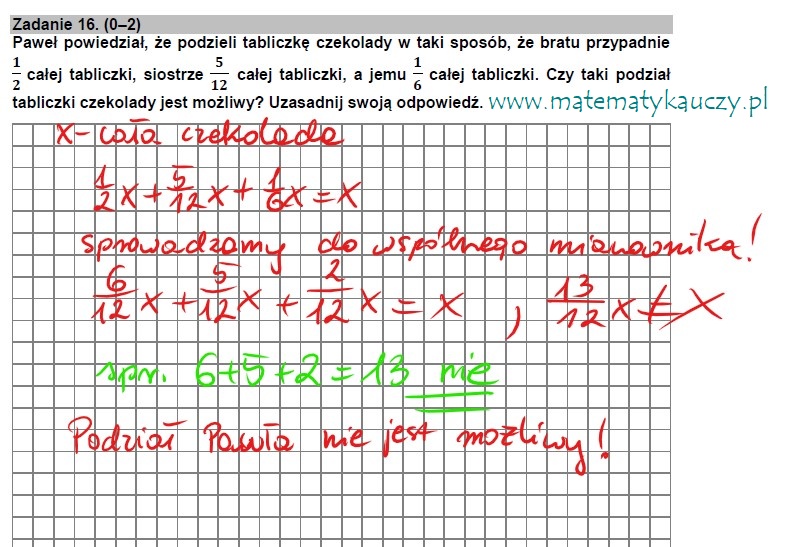 Zadanie 16. (0–2)
Paweł powiedział, że podzieli tabliczkę czekolady w taki sposób, że bratu przypadnie
1/2 całej tabliczki, siostrze 5/12 całej tabliczki, a jemu 1/6 całej tabliczki. Czy taki podział
tabliczki czekolady jest możliwy? Uzasadnij swoją odpowiedź. www.matematykauczy.pl
x - cała czekolada
1/2 x + 5/12 x + 1/6 x = x
sprowadzamy do wspólnego mianownika!
6/12 x + 5/12 x + 2/12 x = x , 13/12 x ≠ x
spr. 6+5+2 = 13 nie
Podział Pawła nie jest możliwy!